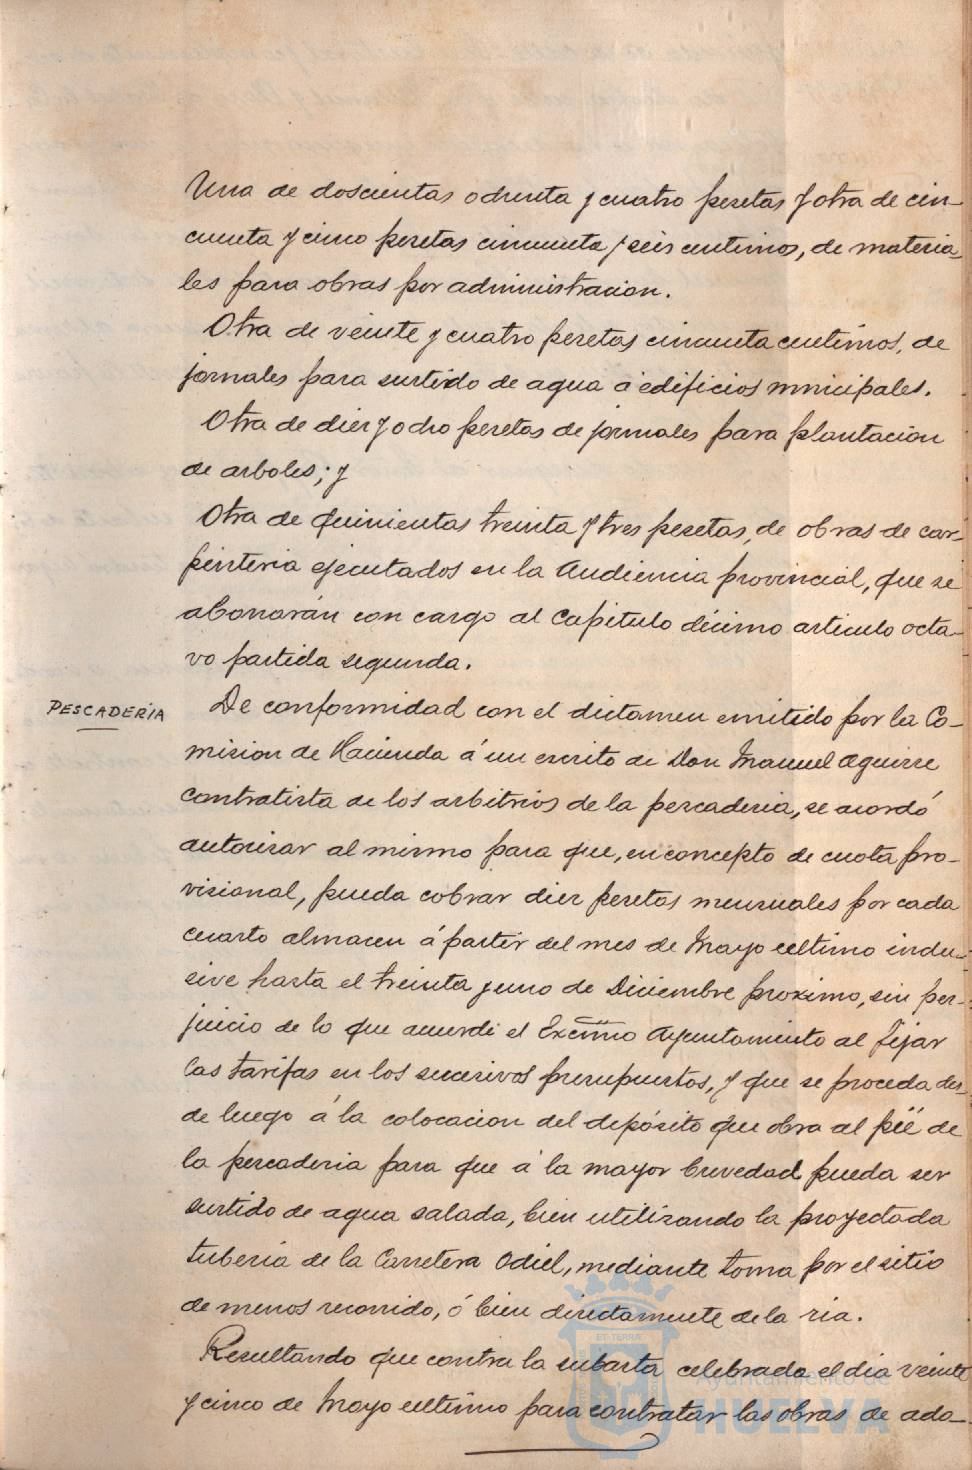 Una de doscientas ochenta y cuatro pesetas y otra de cin-
cuenta y cinco pesetas cincuenta y seis centimos, de materia-
les para obras por administracion.
Otra de veinte y cuatro pesetas cincuenta centimos, de
jornales para surtido de agua á edificios municipales.
Otra de diez y ocho pesetas de jornales para plantacion
de arboles; y
Otra de quinientas treinta y tres pesetas, de obras de car-
pinteria ejecutados en la Audiencia provincial, que se
abonarán con cargo al Capitulo décimo articulo octa-
vo partida segunda.
PESCADERÍA
De conformidad con el dictamen emitido por la Co-
mision de Hacienda á un escrito de Don Manuel Aguirre
contratista de los arbitrios de la pescaderia, se acordó
autorizar al mismo para que, en concepto de cuota pro-
visional, pueda cobrar diez pesetas mensuales por cada
cuarto almacen á partir del mes de Mayo ultimo inclu-
sive hasta el treinta y uno de Diciembre proximo, sin per-
juicio de lo que acuerde el Excmo Ayuntamiento al fijar
las tarifas en los sucesivos presupuestos, y que se proceda des-
de luego á la colocacion del depósito que obra al pié de
la pescaderia para que á la mayor brevedad pueda ser
surtido de agua salada, bien utilizando la proyectada
tuberia de la Carretera Odiel, mediante toma por el sitio
de menos recorrido, ó bien directamente de la ria.
Resultando que contra la subasta celebrada el dia veinte
y cinco de Mayo ultimo para contratar las obras de ado-
ET TERRÆ
Ayuntamiento de
HUELVA